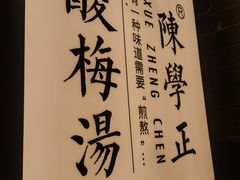 ®
陳學正
XUE ZHENG CHEN
一种味道需要“煎熬”…
酸梅湯